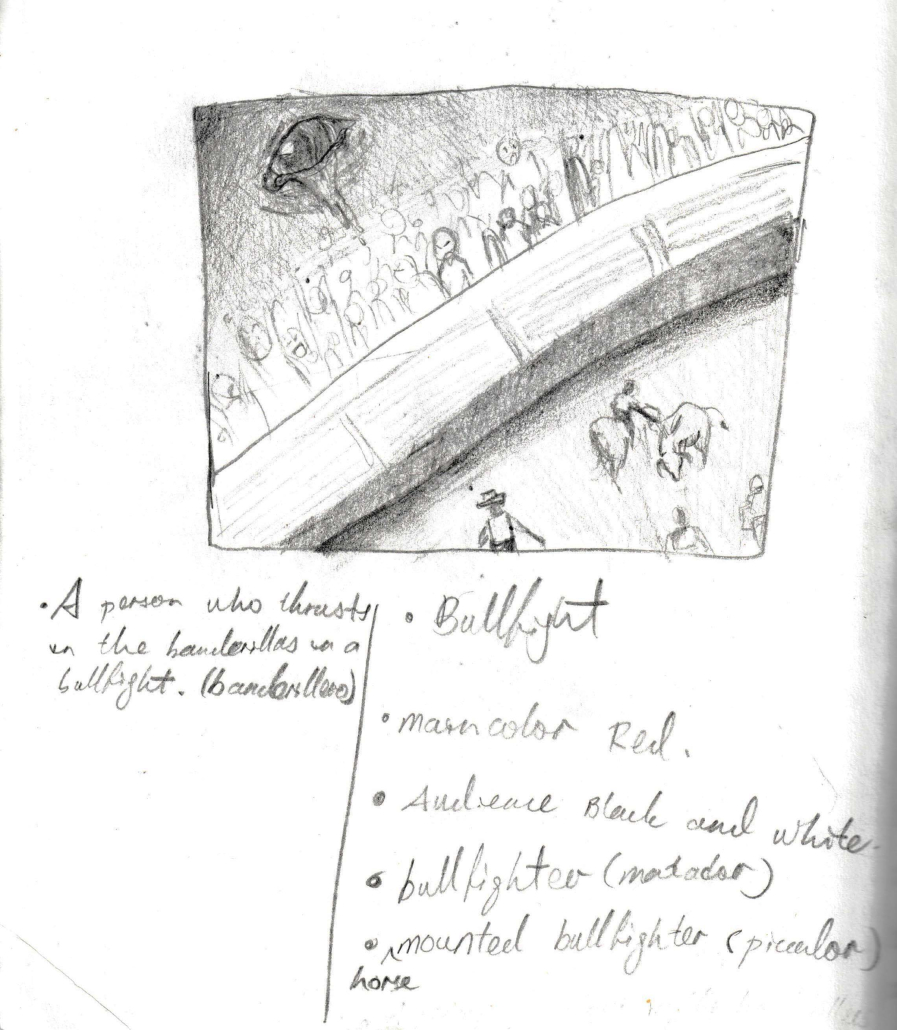 • A person who thrusts
in the banderillas in a
bullfight. (banderillero)
• Bullfight
• main color Red.
• Audience Black and white.
• bullfighter (matador)
• mounted bullfighter (picador)
horse